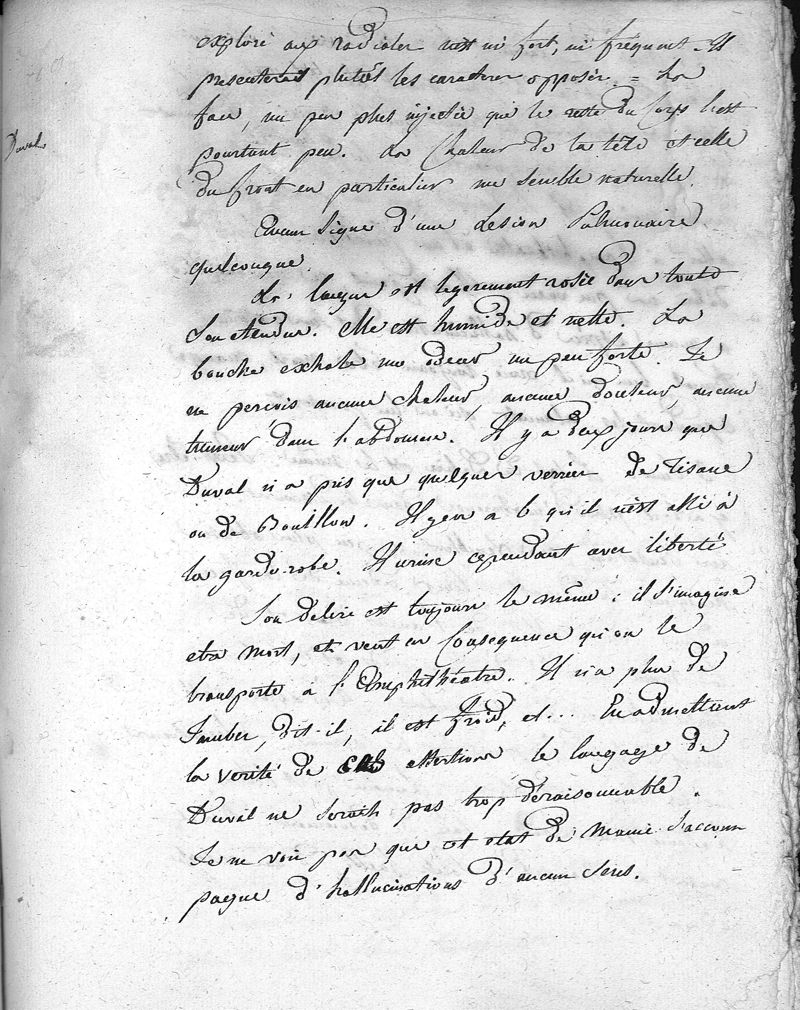 exploré aux radiales n'est ni fort, ni fréquent. Il
presenterait plutôt les caracteres opposés = La
face, un peu plus injectée que le reste du corps l'est
pourtant peu. La Chaleur de la tête et celle
Duval
du front en particulier me semble naturelle.
Aucun signe d'une Lesion Pulmonaire
quelconque.
La langue est legerement rosée dans toute
son etendue. Elle est humide et nette. La
bouche exhale une odeur un peu forte. Je
ne perçois aucune chaleur, aucune douleur, aucune
tumeur dans l'abdomen. Il y a deux jours que
Duval n'a pris que quelques verrées de Tisane
ou de Bouillon. Il y en a 6 qu'il n'est allé à
la garde-robe. Il urine cependant avec liberté
Son delire est toujours le même : il s'imagine
etre mort, et veut en Consequence qu'on le
transporte à l'Amphithéatre. Il n'a plus de
Jambes, dit-il, il est froid, et... En admettant
la verité de ces assertions le langage de
Duval ne serait pas trop déraisonnable.
Je ne vois pas que cet etat de Manie s'accom
pagne d'hallucinations d'aucun sens.